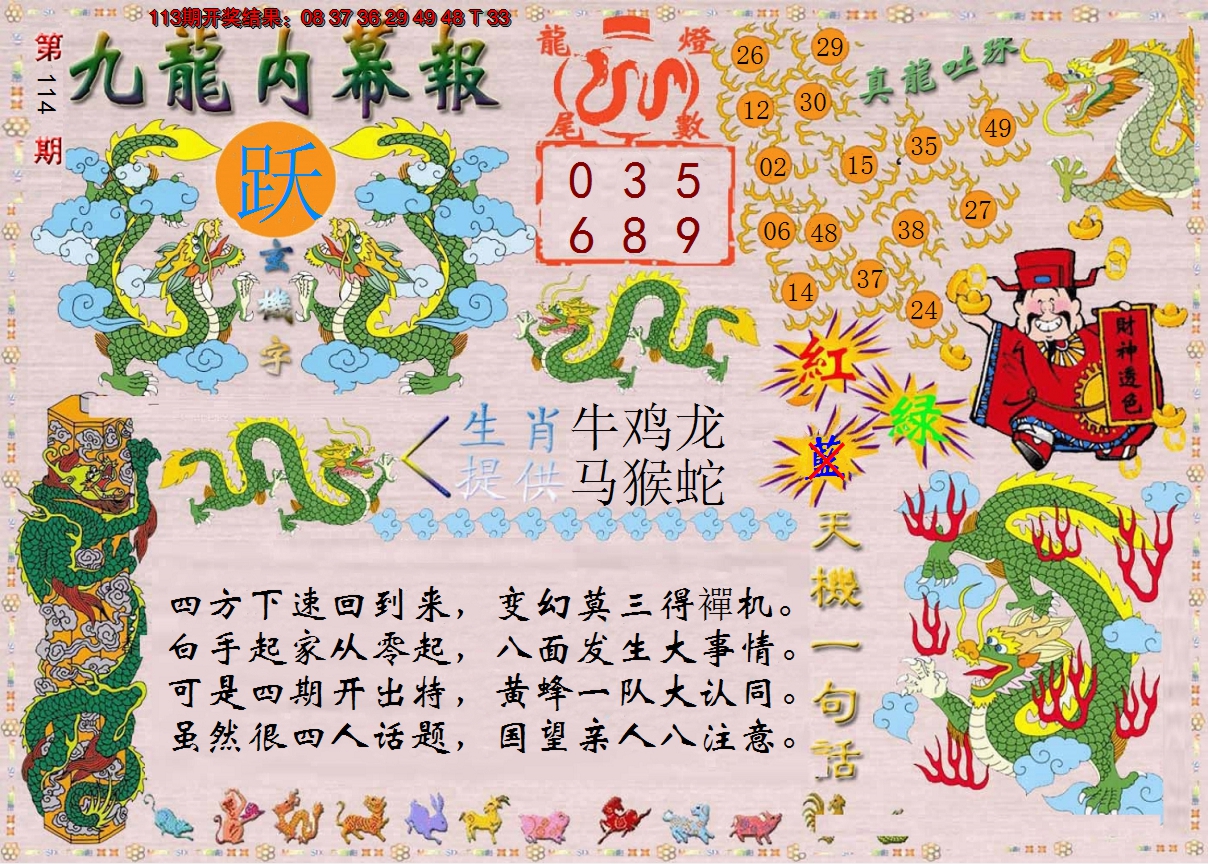 113期开奖结果：08 37 36 29 49 48 T 33
第114期
九龍内幕報
跃
玄機字
龍燈尾數
0 3 5
6 8 9
真龍吐珠
26 29
12 30
02 15 35 49
06 48 38 27
14 37 24
財神透色
紅
綠
藍
生肖提供
牛鸡龙
马猴蛇
天機一句話
四方下速回到来，变幻莫三得襌机。
白手起家从零起，八面发生大事情。
可是四期开出特，黄蜂一队大认同。
虽然很四人话题，国望亲人八注意。